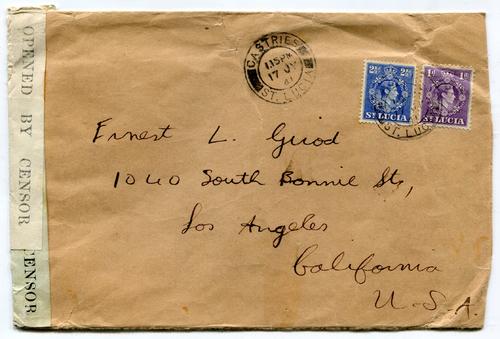 OPENED BY CENSOR
CENSOR
CASTRIES
1.15 PM
17 JY
41
ST. LUCIA
2½d 2½d
ST LUCIA
1d 1d
ST LUCIA
ST. LUCIA
Ernest L. Giod
1040 South Bonnie St,
Los Angeles
California
U.S.A.